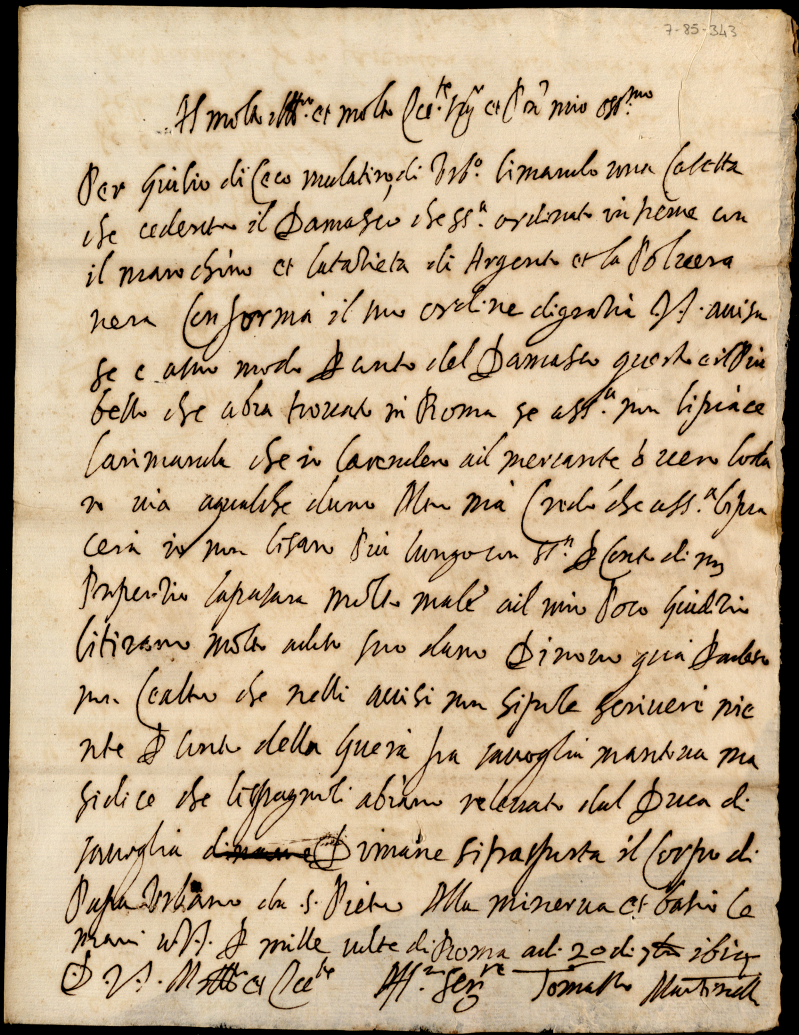 7-85-343
Al molto Ill.re et molto Ecc.te Sig.r et Pron mio oss.mo
Per Giulio di Ceco mulatiro di Urb.o li mando una Casetta
che cedentro il Damasco che SS.a ordinato insieme con
il marochino et la di Argento et la Polvera
nera Conforma il suo ordine di gratia V.S. avisa
se e a suo modo P conto del Damasco questo e il Piu
bello che abia trovato in Roma se a SS.a non li piace
la rimanda che io la rendero al mercante o vero lo da
ro via a qualche duno Altro ma Credo che a SS.a li pia
cera io non li saro Piu lungo con SS.a P Conto di m
Propertio la pasara molto male al mio Poco Giuditio
li tirano molto adoso suo dano Di novo qua P adeso
non Cealtro che nelli avisi non si pole scrivere nie
nte P conto della Guera fra savoglia mantua ma
si dice che li spagnoli abiano relevato dal Duca di
savoglia Dimane si trasporta il Corpo di
Papa Urbano da S. Pietro Alla minerva et basio le
mani a V.S. P mille volte di Roma adi 20 di 7bre
D V.S. M Ill.re et Ecc.te Aff. Ser.re Tomasso Martinelli